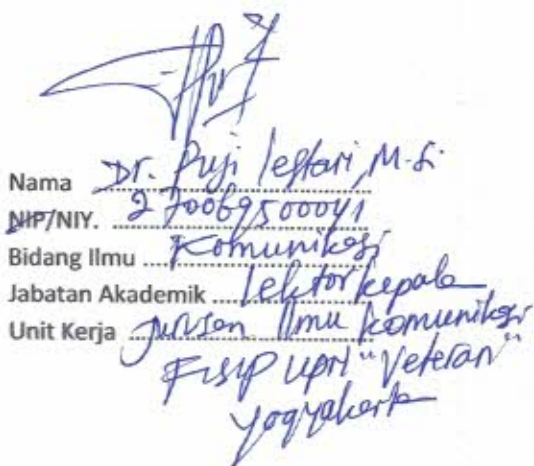 Nama Dr. Puji lestari, M.Si
NIP/NIY. 2 7006 95 00041
Bidang Ilmu Komunikasi
Jabatan Akademik lektor kepala
Unit Kerja Jurusan Ilmu Komunikasi
FISIP UPN "Veteran"
Yogyakarta